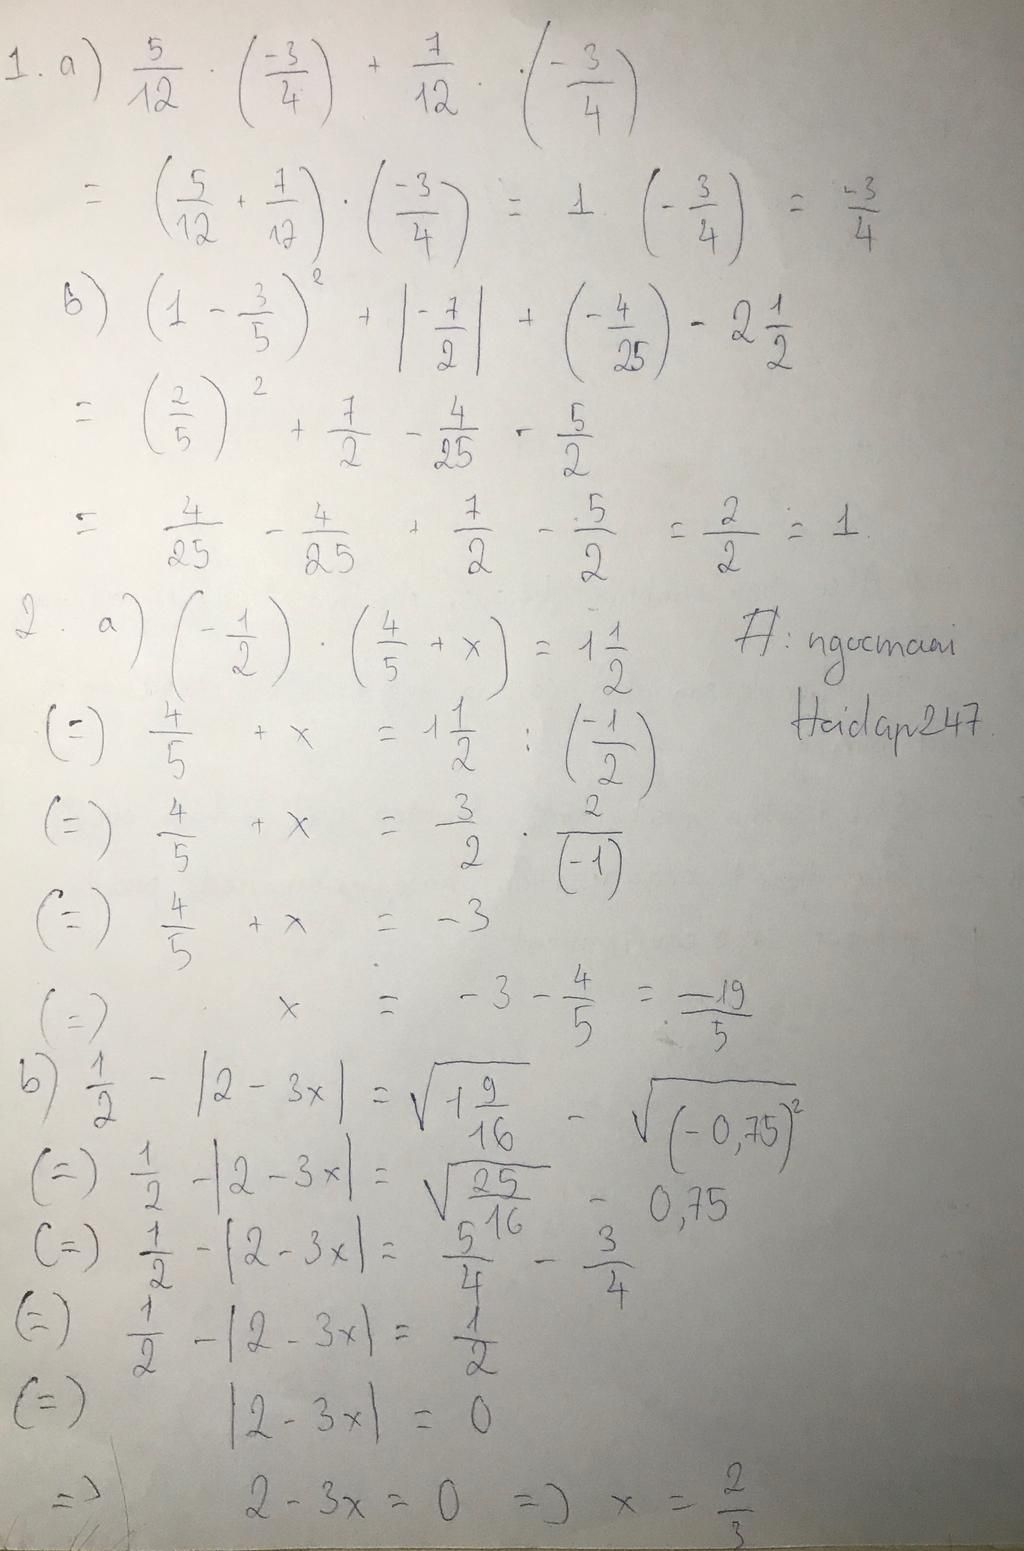 1. a) 5/12 . (-3/4) + 7/12 . (-3/4)
= (5/12 + 7/12) . (-3/4) = 1 (-3/4) = -3/4
b) (1 - 3/5)² + |-7/2| + (-4/25) - 2 1/2
= (2/5)² + 7/2 - 4/25 - 5/2
= 4/25 - 4/25 + 7/2 - 5/2 = 2/2 = 1
2. a) (-1/2) . (4/5 + x) = 1 1/2
(=) 4/5 + x = 1 1/2 : (-1/2)
(=) 4/5 + x = 3/2 . 2/(-1)
(=) 4/5 + x = -3
(=) x = -3 - 4/5 = -19/5
b) 1/2 - |2 - 3x| = √(1 9/16) - √((-0,75)²)
(=) 1/2 - |2 - 3x| = √(25/16) - 0,75
(=) 1/2 - |2 - 3x| = 5/4 - 3/4
(=) 1/2 - |2 - 3x| = 1/2
(=) |2 - 3x| = 0
=> 2 - 3x = 0 => x = 2/3
ngocmaai
Hoidap247